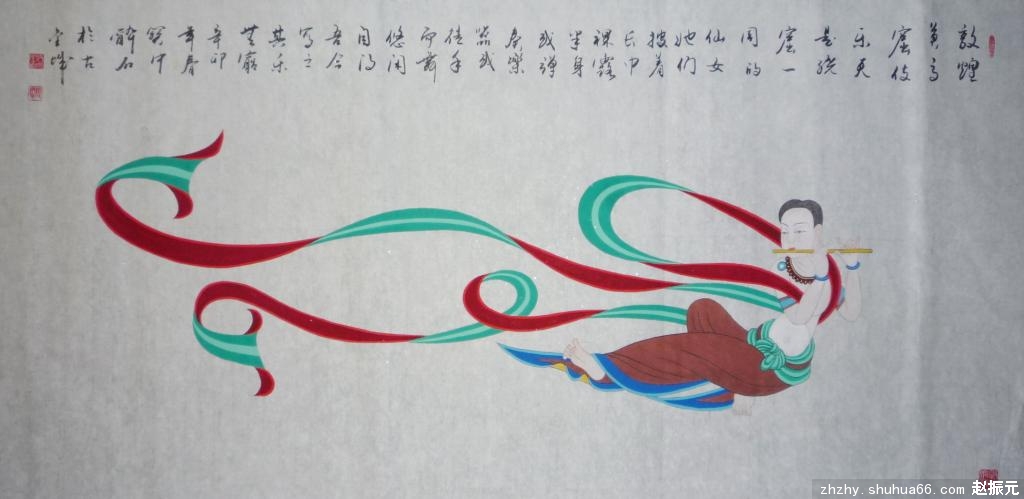 敦煌
莫高
窟伎
乐天
是绕
窟一
周的
仙女
她们
披着
长巾
裸露
半身
或弹
奏樂
器或
徒手
而舞
悠闲
自得
吾今
写之
其乐
無窮
辛卯
年春
醉石
於古
金城
zhzhy.shuhua66.com 赵振元